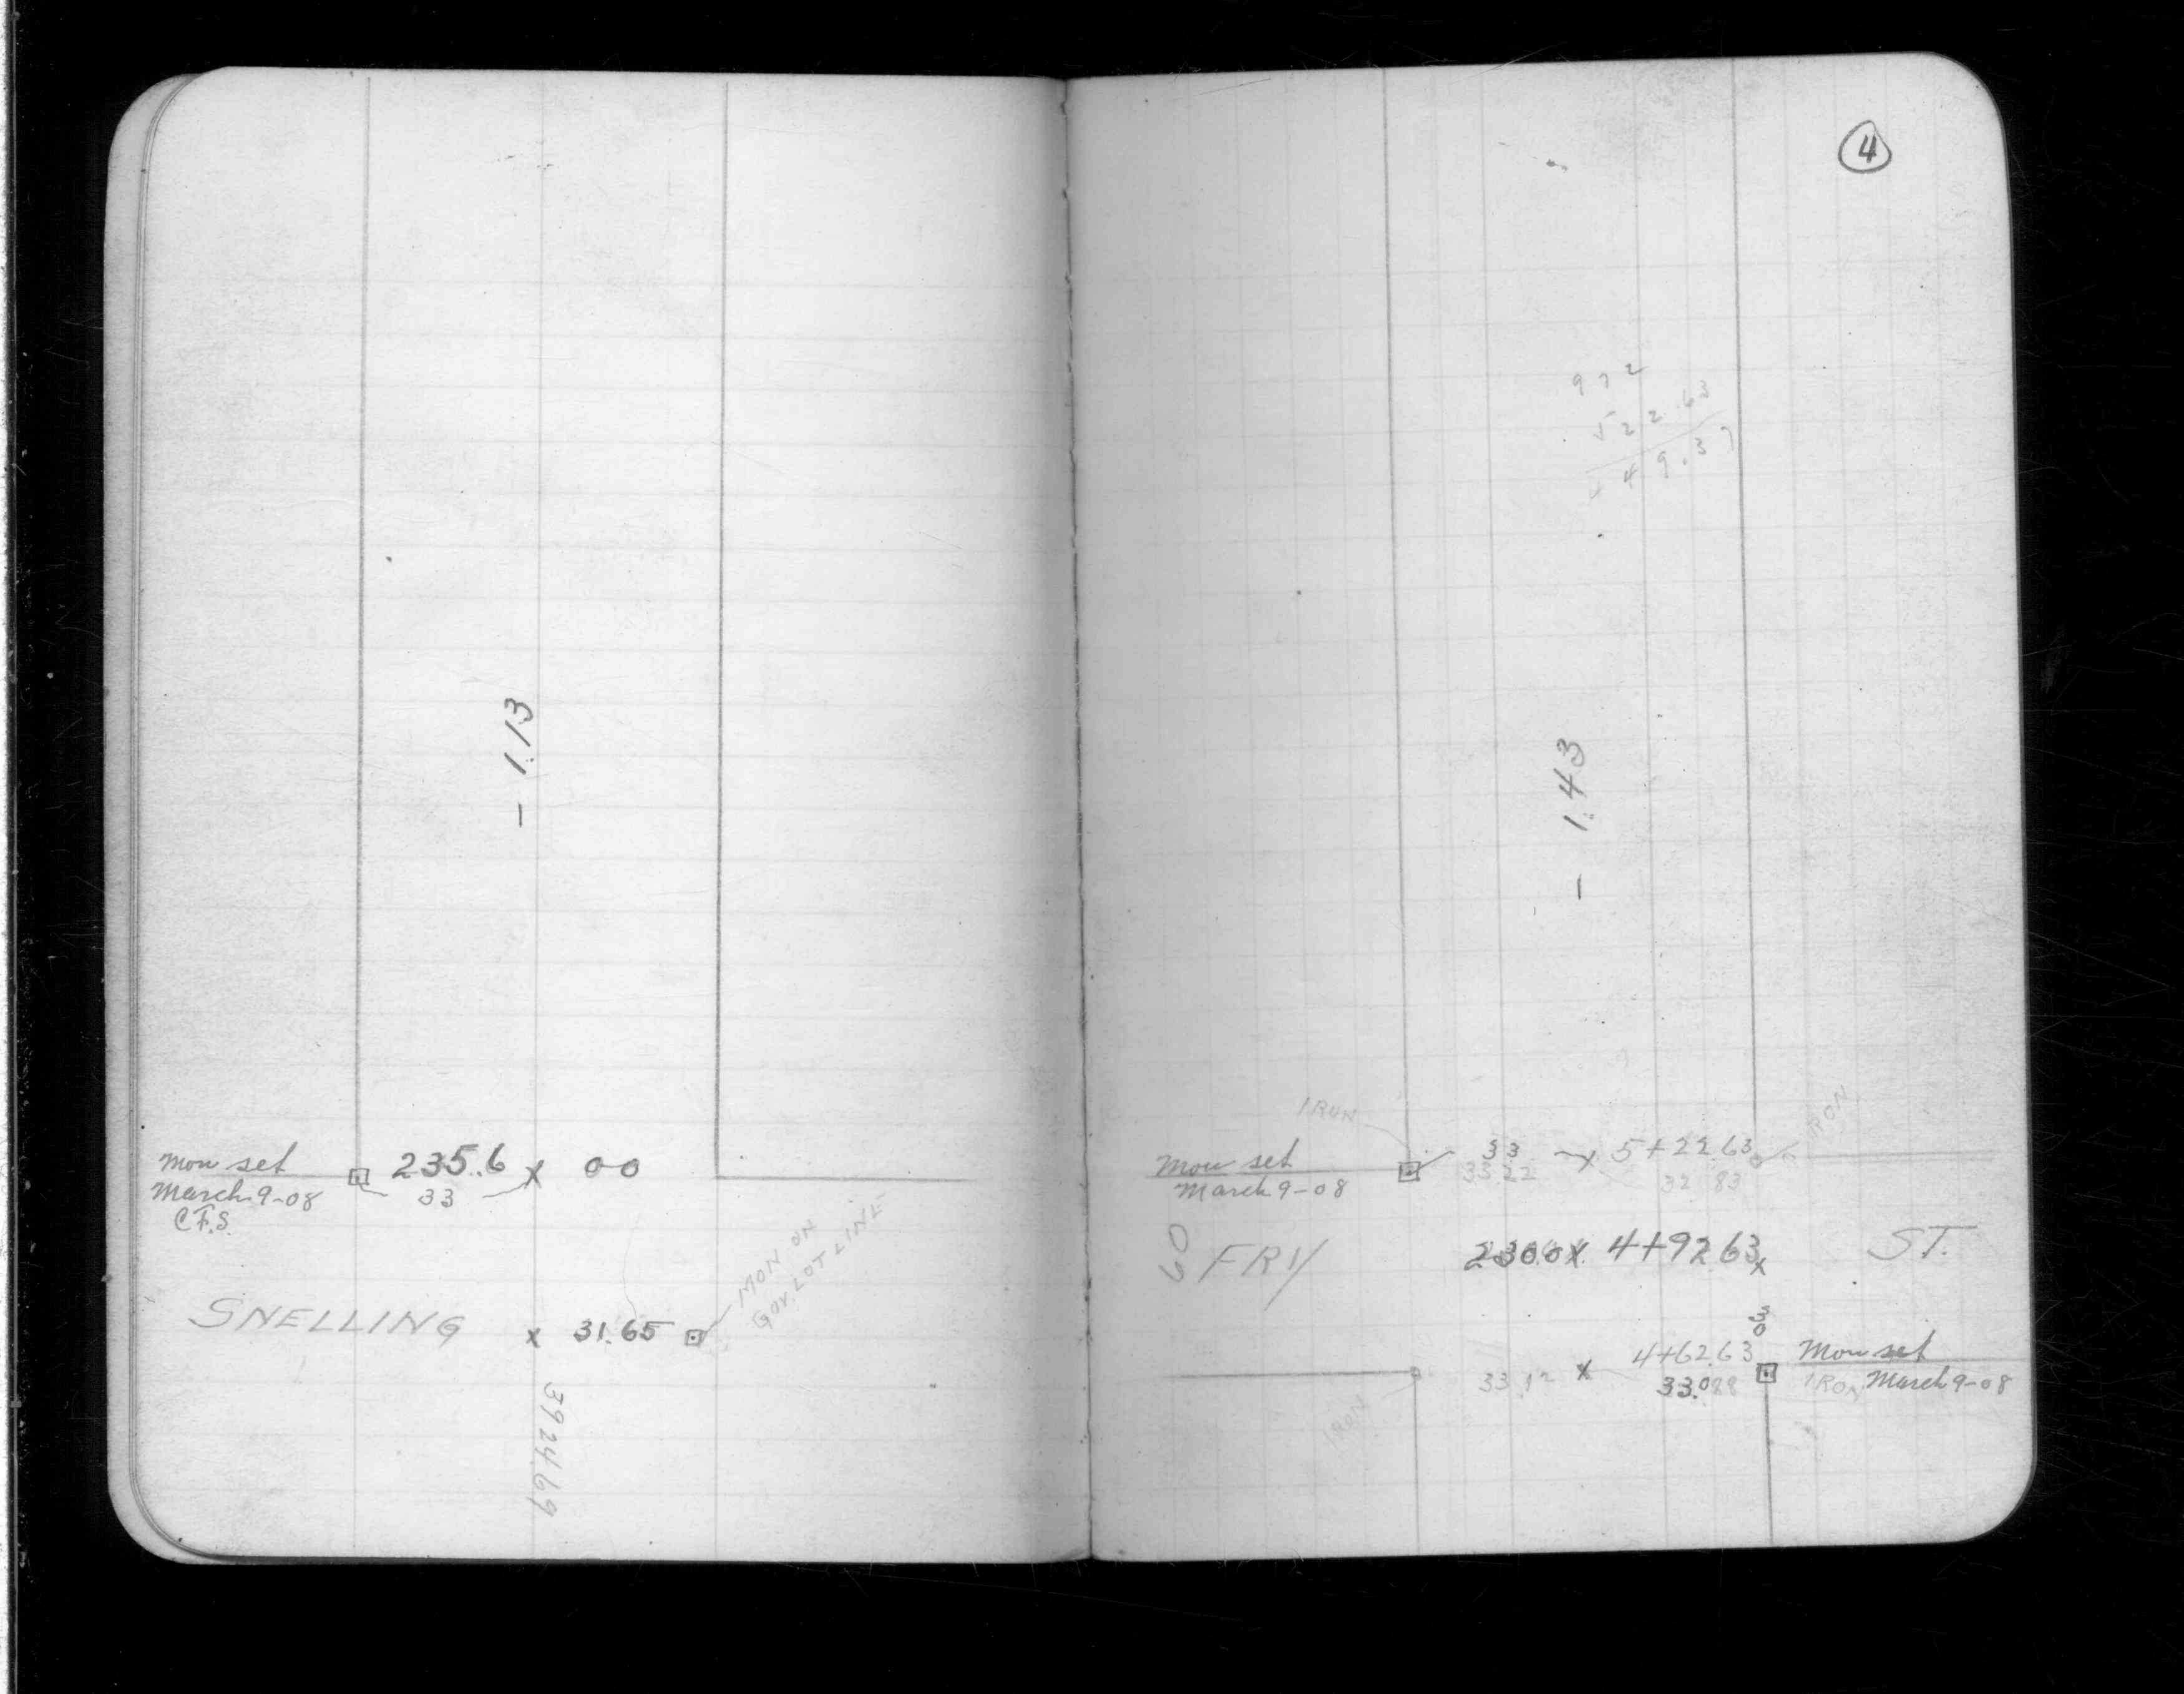 - 1.13
Mon set
235.6 x 00
March 9-08
33
C.F.S.
MON ON
GOV LOT LINE
SNELLING
x 31.65
3924.69
4
972
522.63
449.37
- 1.43
IRON
IRON
Mon set
33
x 5+22.63
March 9-08
33.22
32.83
60
FRY
230.0 x 4+92.63 x
ST.
30
4+62.63
Mon set
33.12
x
33.0
IRON
March 9-08
IRON